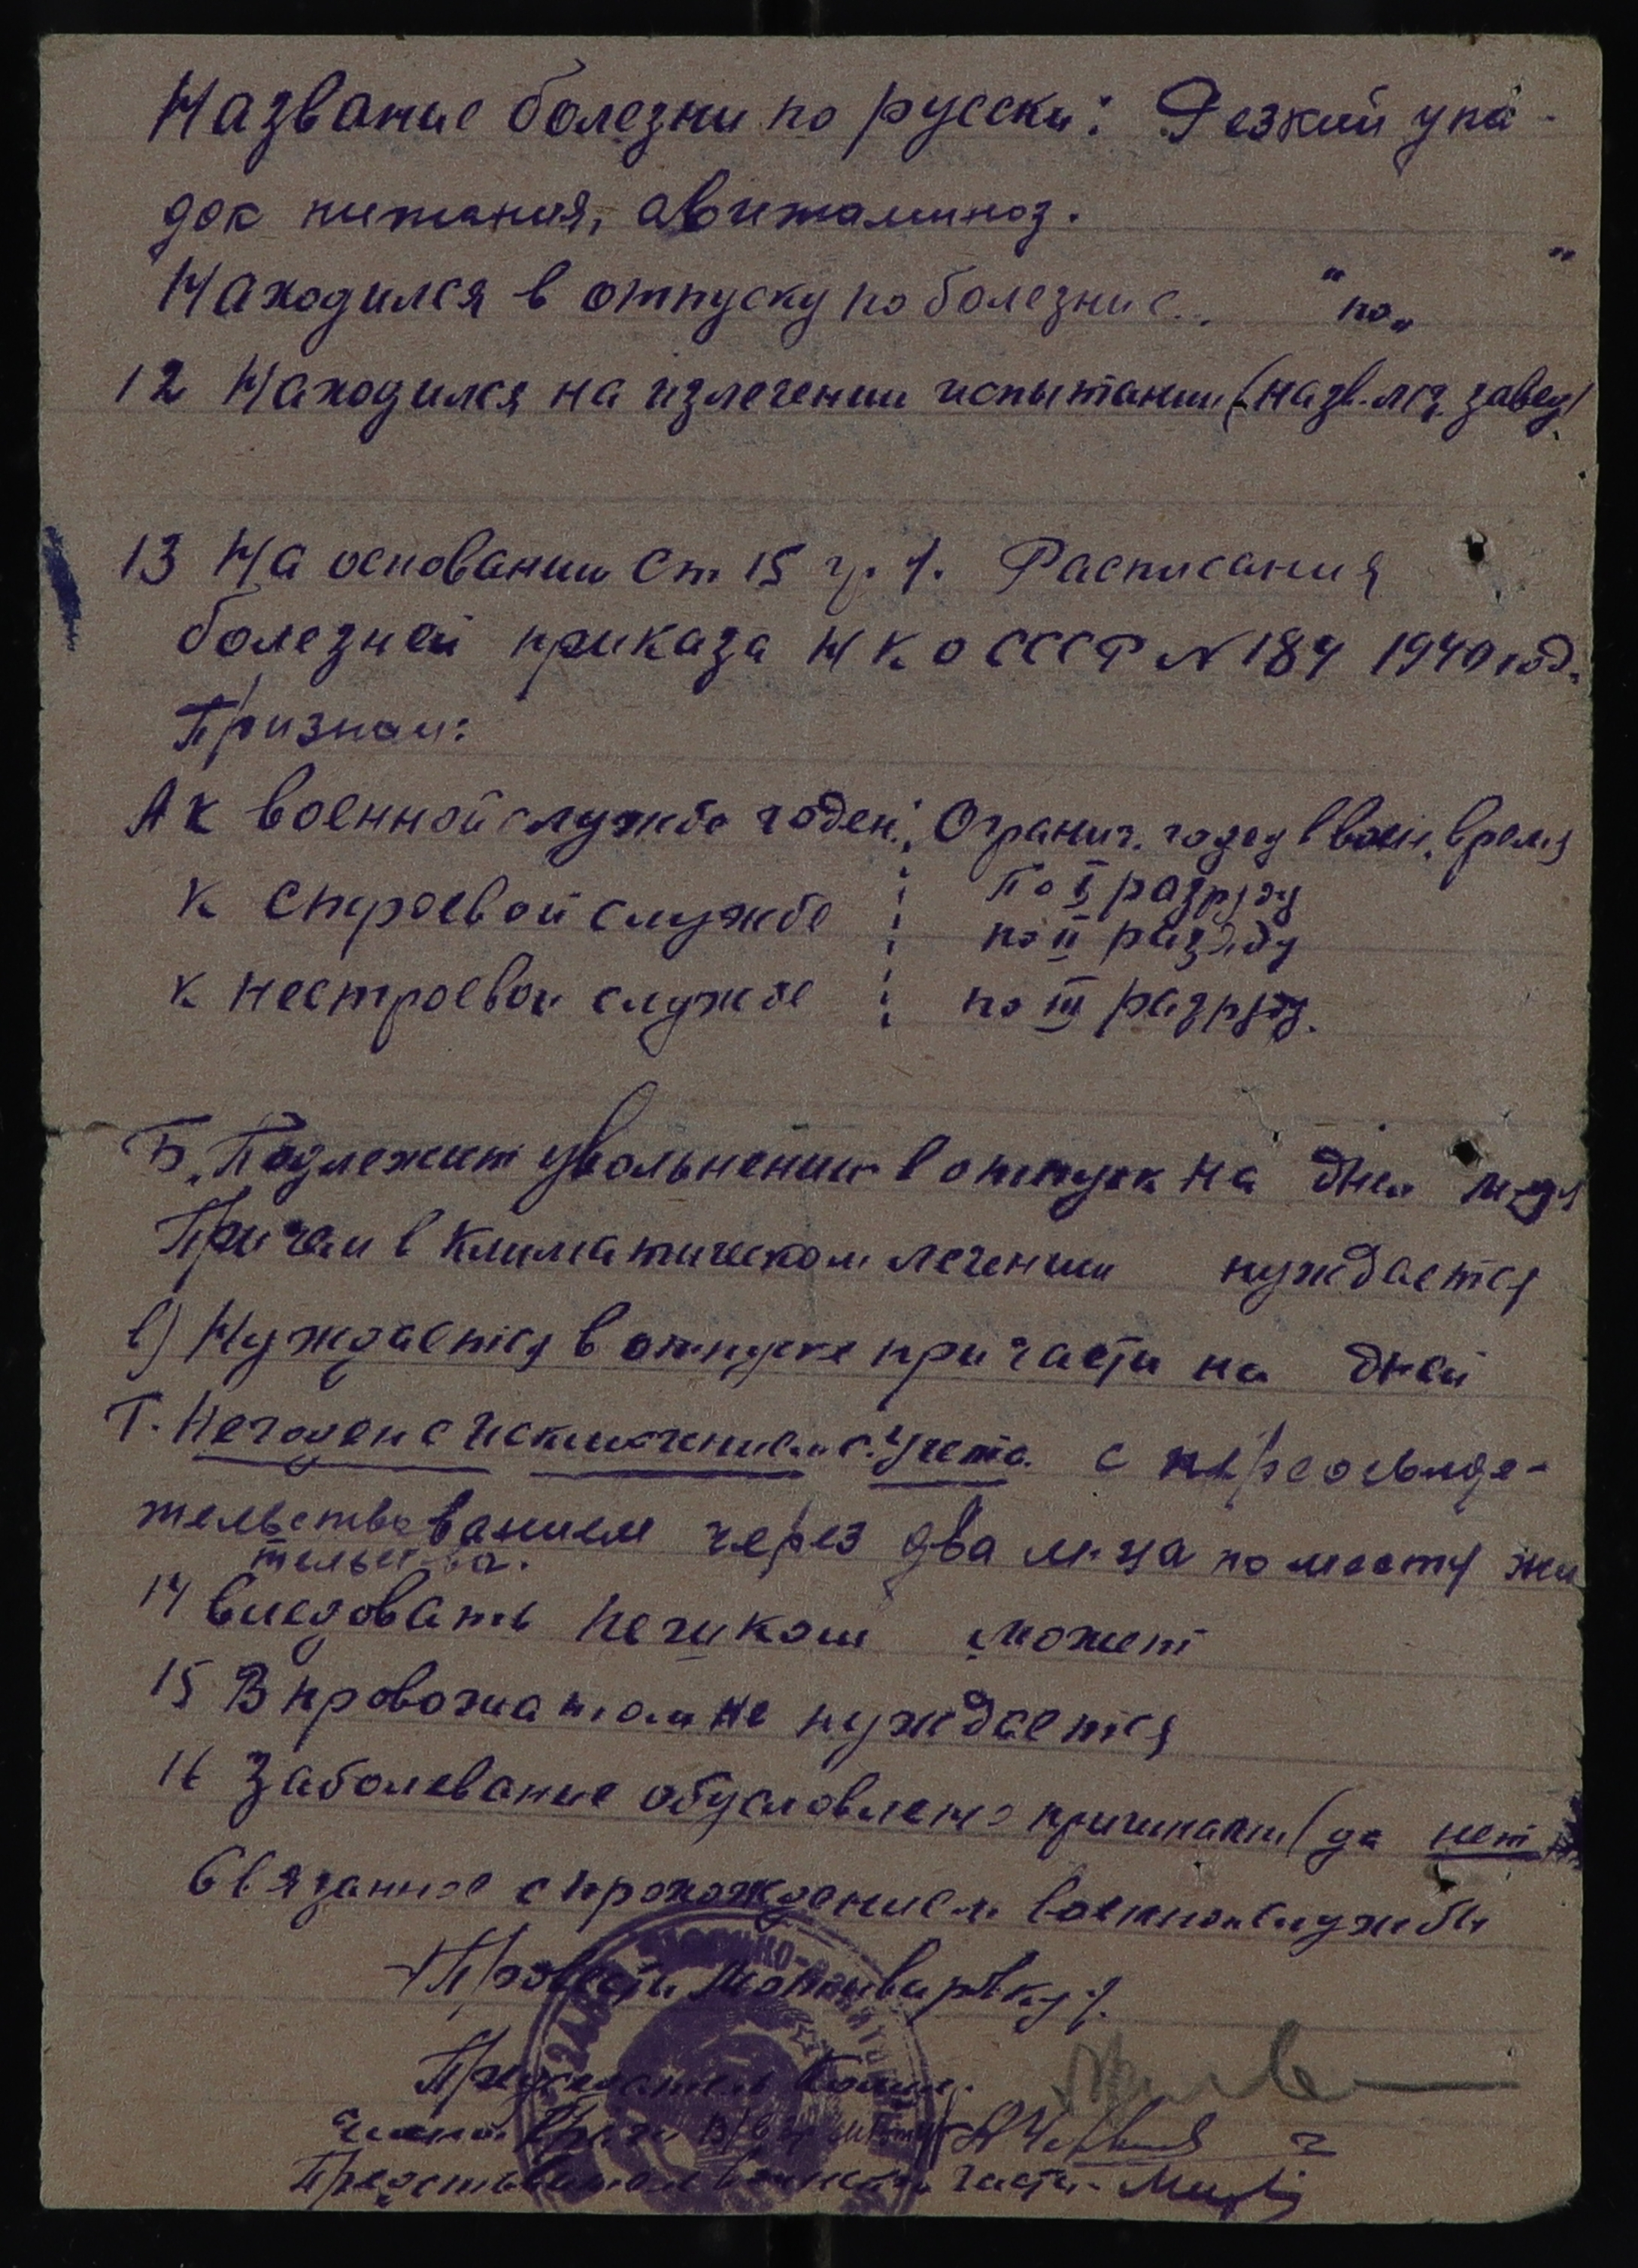 Название болезни по русски: Резкий упа-
док питания, авитаминоз.
Находился в отпуску по болезни с... " по " "
12 Находился на излечении испытании (назв. леч. завед)
13 На основании Ст 15 гр. 1. Расписания
болезней приказа НКО СССР № 184 1940 год.
Признан:
А к военной службе годен: Огранич. годен в воен. время
к строевой службе : по I разряду
по II разряду
к нестроевой службе : по III разряду.
Б. Подлежит увольнению в отпуск на дней м-ця
Причем в климатическом лечении нуждается
в) Нуждается в отпуске при части на дней
Г. Негоден с исключением с учета с переосвиде-
тельствованием через два м-ца по месту жи
тельства.
14 Следовать пешком может
15 В провожатом не нуждается
16 Заболевание обусловлено причинами (да нет)
Связанное с прохождением военной службы
Председатель Комис.
Члены: Врачи
Представитель воинской части